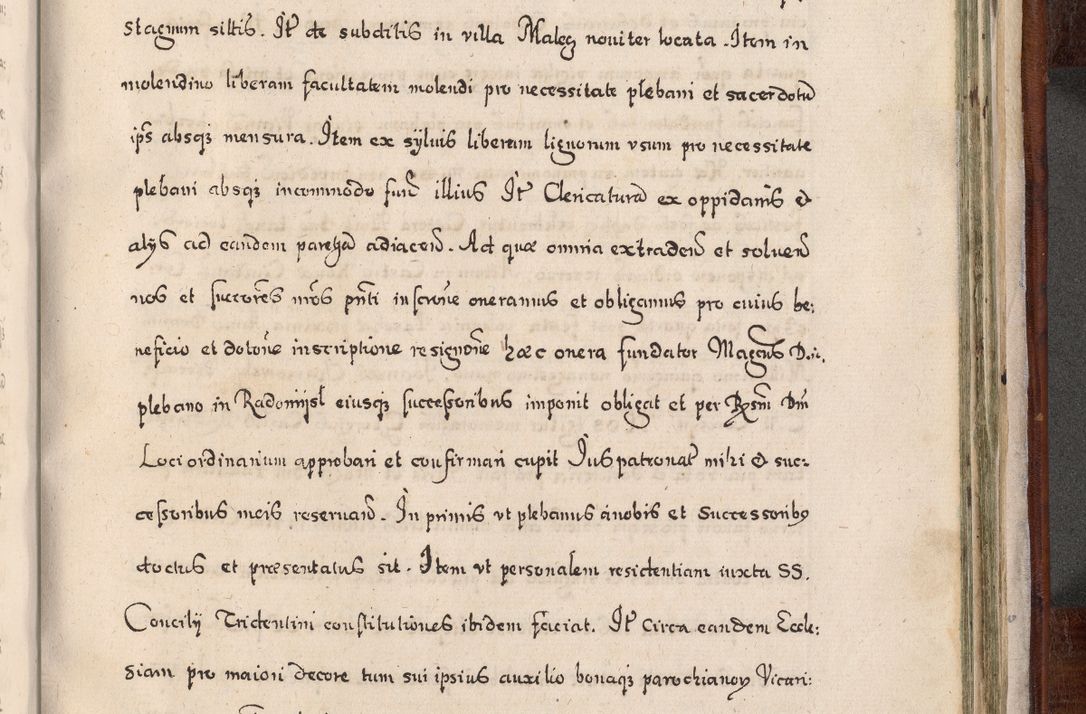 stagnum siltis. It de subditis in villa Maleg noviter locata. Item in
molendino liberam facultatem molendi pro necessitate plebani et sacerdotū
ips absqȝ mensura. Item ex sylvis liberam lignorum vsum pro necessitate
plebani absqȝ incommodo fund illius It Clericaturā ex oppidanis &
alijs ad eandem adiacen. Ad quæ omnia extraden et solven
nos et succores nros pnti inscrone oneramus et obligamus pro cuius be:
neficio et dotone inscriptione resignone hæc onera fundator Magcus D.n.
plebano in Radomijsł eiusqȝ successoribus imponit obligat et per Rssm Dm
Loci ordinarium approbari et confirmari cupit Jus patronat mihi & suc-
cessoribus meis reservand. In primis vt plebanus a nobis et Successoribȝ
doctus et præsentatus sit. Item vt personalem residentiam iuxta SS.
Concilij Tridentini constitutiones ibidem faciat. It circa eandem Eccle:
siam pro maiori decore tum sui ipsius auxilio bonaqȝ parochianoꝝ Vicari: